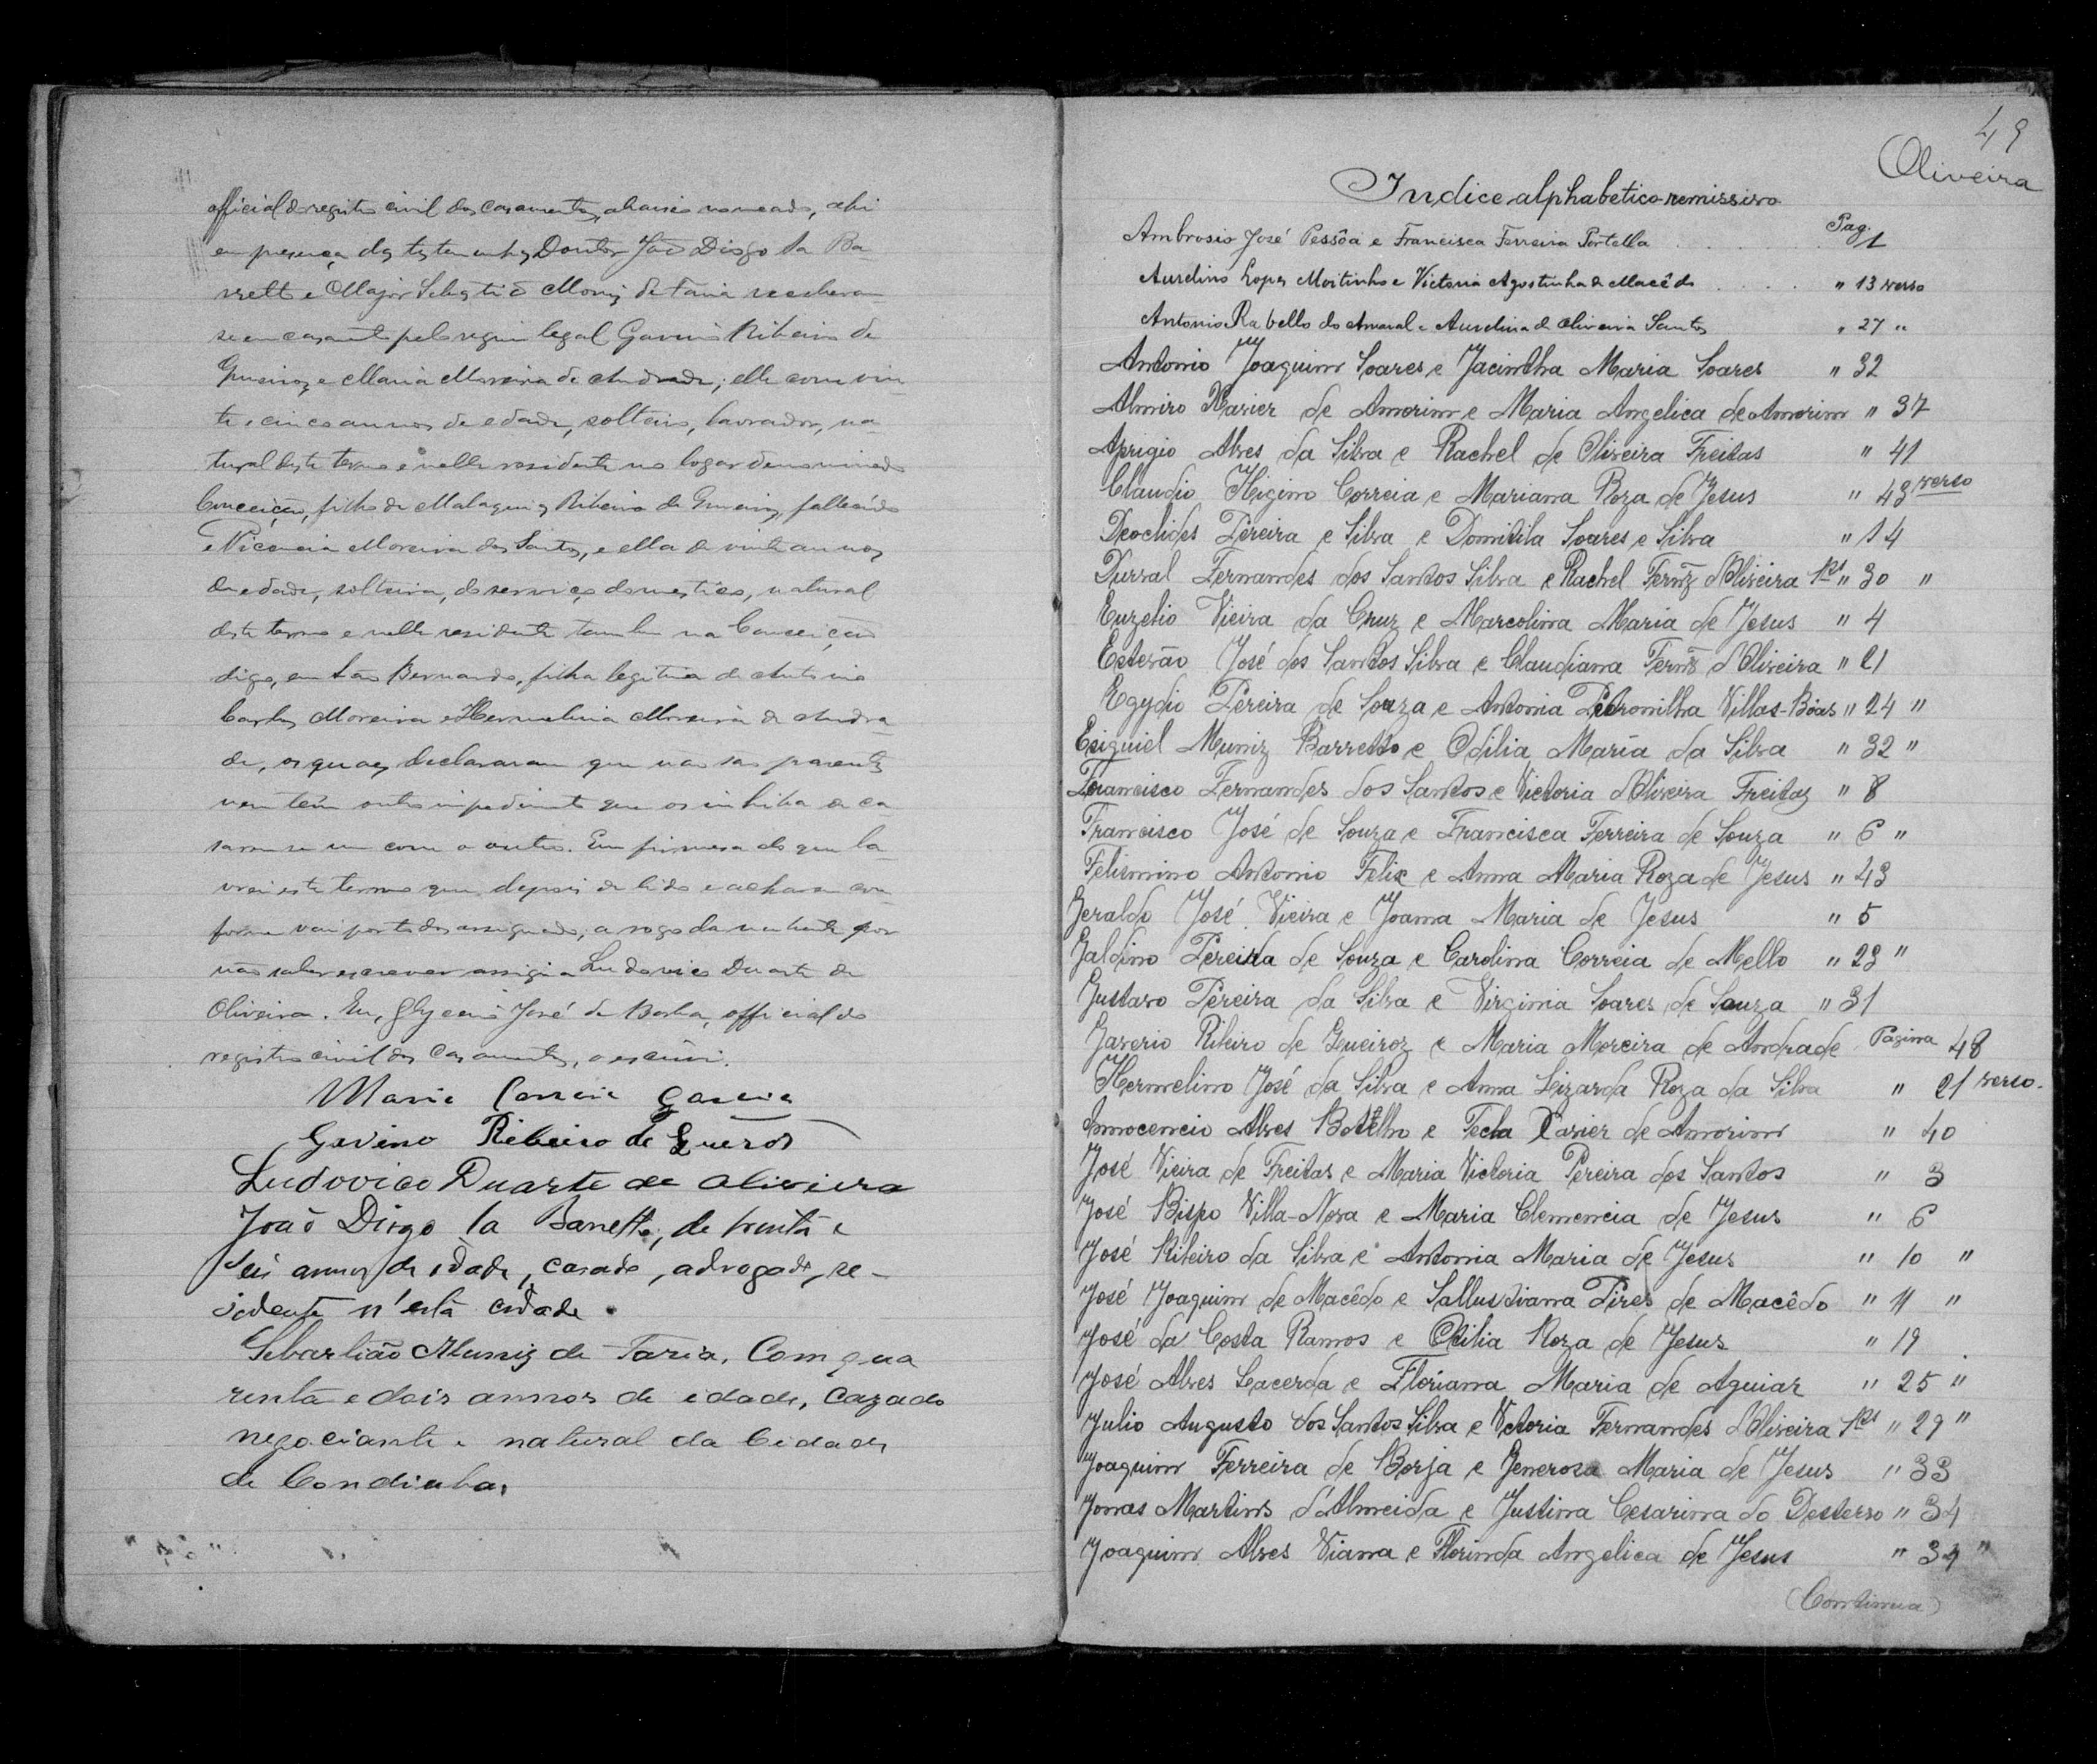 official do registro civil dos casamentos, abaixo nomeado, ahi
em presença das testemunhas Doutor João Diogo Sá Ba
rretto e Major Sebastião Moniz de Faria receberam
se em casamento pelo regimen legal Gavino Ribeiro de
Queiroz e Maria Moreira de Andrade; elle com vin
te e cinco annos de edade, solteiro, lavrador, na
tural deste termo e nelle residente no logar denominado
Conceição, filho de Malaquias Ribeiro de Queiroz, fallecido
e Vicencia Moreira dos Santos, e ella de vinte annos
de edade, solteira, de serviço domestico, natural
deste termo e nelle residente tambem na Conceição
digo, em São Bernardo, filha legitima de Antonio
Carlos Moreira e Hermelina Moreira de Andra
de, os quaes declararam que não são parentes
nem têm outro impedimento que os inhiba de ca
sarem-se um com o outro. Em firmeza do que la
vrei este termo que depois de lido e acharem con
forme vai por todos assignado, a rogo da nubente por
não saber escrever assigna Ludovico Duarte de
Oliveira. Eu, Glycerio José de Borba, official do
registro civil dos casamentos, o escrevi.
Mario Correia Garcia
Gavino Ribeiro de Queros
Ludovico Duarte de Oliviera
João Diogo Sá Barretto, de trinta e
seis annos de idade, casado, advogado, re-
sidente n'esta cidade.
Sebastião Muniz de Faria, Com qua
renta e dois annos de idade, cazado
negociante e natural da Cidade
de Condeuba.
49
Oliveira
Indice alphabetico remissivo
Pag.
Ambrosio José Pessôa e Francisca Ferreira Portella . . . . 1
Aurelino Lopes Moitinho e Victoria Agostinha de Macêdo . . . . " 13 verso
Antonio Rabello do Amaral e Aurelina de Oliveira Santos " 27 "
Antonio Joaquim Soares e Jacintha Maria Soares " 32
Almiro Xavier de Amorim e Maria Angelica de Amorim " 37
Aprigio Alves da Silva e Rachel de Oliveira Freitas " 41
Claudio Higino Correia e Mariana Roza de Jesus " 43 verso
Deoclides Pereira e Silva e Domitila Soares e Silva " 14
Durval Fernandes dos Santos Silva e Rachel Fernz d'Oliveira Rs " 30 "
Euzelio Vieira da Cruz e Marcolina Maria de Jesus " 4
Estevão José dos Santos Silva e Claudiana Fernz d'Oliveira " 21
Egydio Pereira de Souza e Antonia Petronilha Villas-Bôas " 24 "
Esiquiel Muniz Barretto e Odilia Maria da Silva " 32 "
Francisco Fernandes dos Santos e Victoria d'Oliveira Freitas " 8
Francisco José de Souza e Francisca Ferreira de Souza " 6 "
Felismino Antonio Felix e Anna Maria Roza de Jesus " 43
Geraldo José Vieira e Joana Maria de Jesus " 5
Galdino Pereira de Souza e Carolina Correia de Mello " 23 "
Gustavo Pereira da Silva e Virginia Soares de Souza " 31
Gaverio Ribeiro de Queiroz e Maria Moreira de Andrade Pagina 48
Hermelino José da Silva e Anna Lizarda Roza da Silva " 21 verso.
Innocencio Alves Botelho e Tecla Xavier de Amorim " 40
José Vieira de Freitas e Maria Victoria Pereira dos Santos " 3
José Bispo Villa-Nova e Maria Clemencia de Jesus " 6
José Ribeiro da Silva e Antonia Maria de Jesus " 10 "
José Joaquim de Macêdo e Sallustiana Pires de Macêdo " 11 "
José da Costa Ramos e Otilia Roza de Jesus " 19
José Alves Lacerda e Floriana Maria de Aguiar " 25 "
Julio Augusto dos Santos Silva e Victoria Fernandes d'Oliveira Rs " 29 "
Joaquim Ferreira de Borja e Generosa Maria de Jesus " 33
Jonas Martins d'Almeida e Justina Cesarina do Desterro " 34
Joaquim Alves Viana e Florinda Angelica de Jesus " 34 "
(Continua)